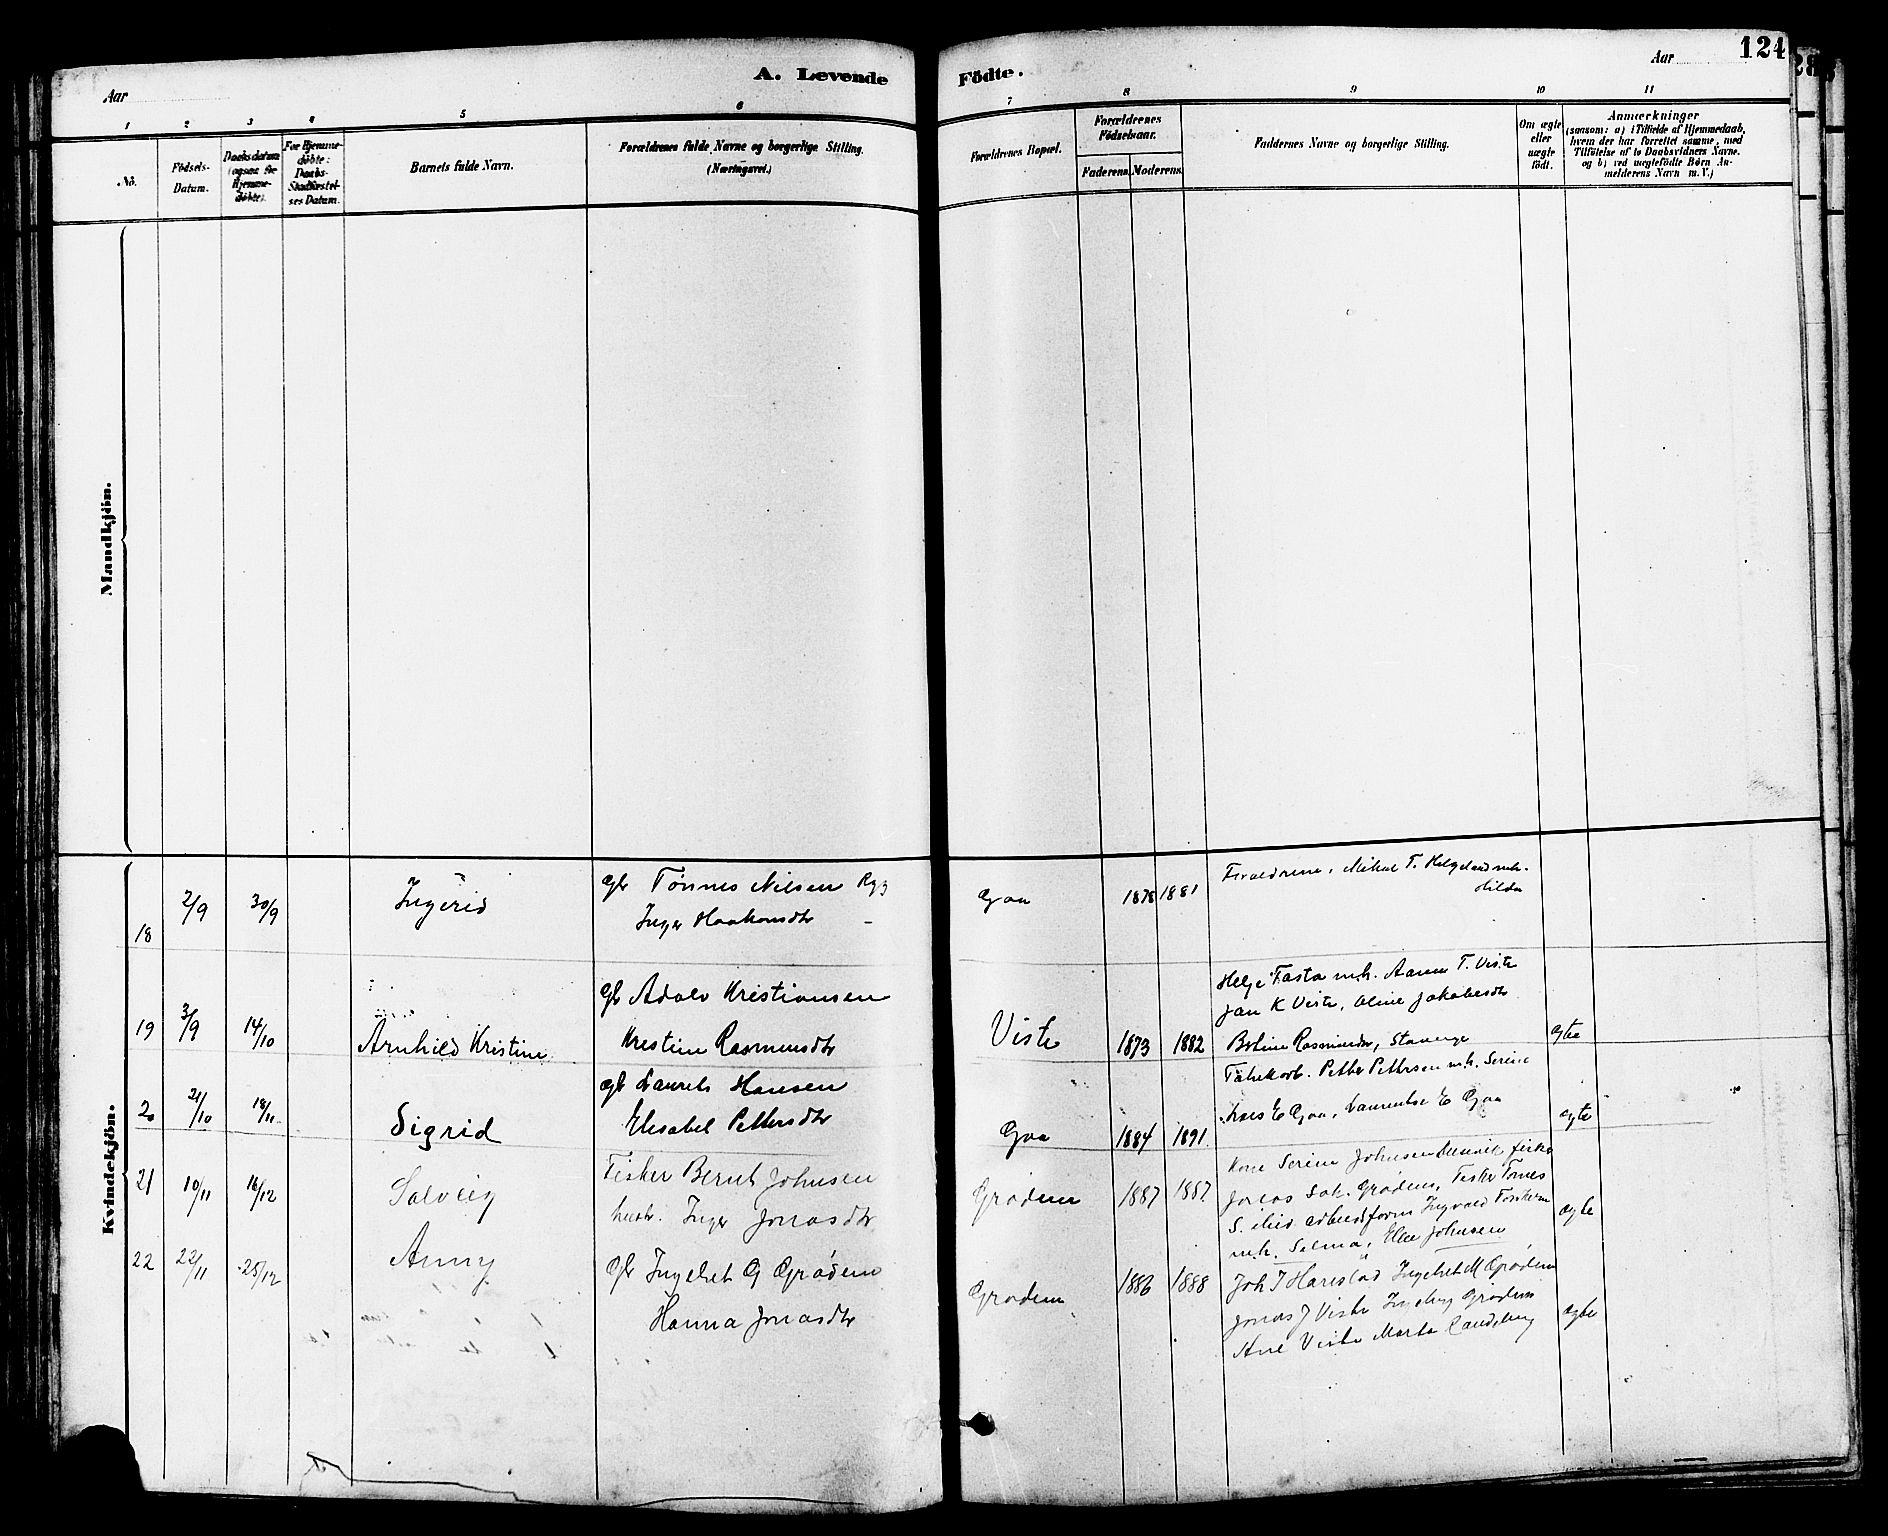 A. Levende Födte.
Aar
Aar
124
1 2 3 4 5 6 7 8 9 10 11
No.
Födsels-Datum.
Daabsdatum (ogsaa for Hjemme-døbte).
For Hjemme-døbte: Daabs-Stadfæstel-ses Datum.
Barnets fulde Navn.
Forældrenes fulde Navne og borgerlige Stilling. (Næringsvei.)
Forældrenes Bopæl.
Forældrenes Födselsaar.
Faderens. Moderens.
Faddernes Navne og borgerlige Stilling.
Om ægte eller uægte födt.
Anmærkninger
(saasom: a) i Tilfælde af Hjemmedaab,
hvem der har forrettet samme, med
Tilföielse af to Daabsvidners Navne.
og b) ved uægtefödte Børn An-
melderens Navn m. V.)
Mandkjön.
Kvindekjön.
18 2/9 30/9 Ingerid
Gbr Tönnes Nilsen
Inger Haakonsdtr
Goa 1878 1881
Forældrene, Mikal T. Helgeland m.h.
Hilda
19 3/9 14/10 Arnhild Kristine
Gbr Adolv Kristiansen
Kristine Rasmusdtr
Viste 1873 1882
Helge Tasta m.h. Aanen T. Viste
Jan K Viste, Oline Jakobsdtr
Bertine Rasmusdtr, Stavanger
ægte
20 21/10 18/11 Sigrid
Gbr Laurits Hansen
Elisabet Pettersdtr
Goa 1884 1891
Petter Pettersen m.h. Serine
Lars E Goa, Laurentse E Goa
ægte
21 10/11 16/12 Solveig
Fisker Bernt Johnsen
hustr. Inger Jonasdtr
Grødem 1887 1887
Kone Serine Johnsen fisker
Jonas Grødem, Fisker Tönnes
S. arbeidsform Ingvald
m.h. Selma, Else Johnsen
ægte
22 22/11 25/12 Anny
Gbr Ingebret G Grødem
Hanna Jonasdtr
Grødem 1886 1888
Joh J Harestad Ingebret M Grødem
Jonas J Viste Ingeborg Grødem
Ane Viste Marta Randeberg
ægte